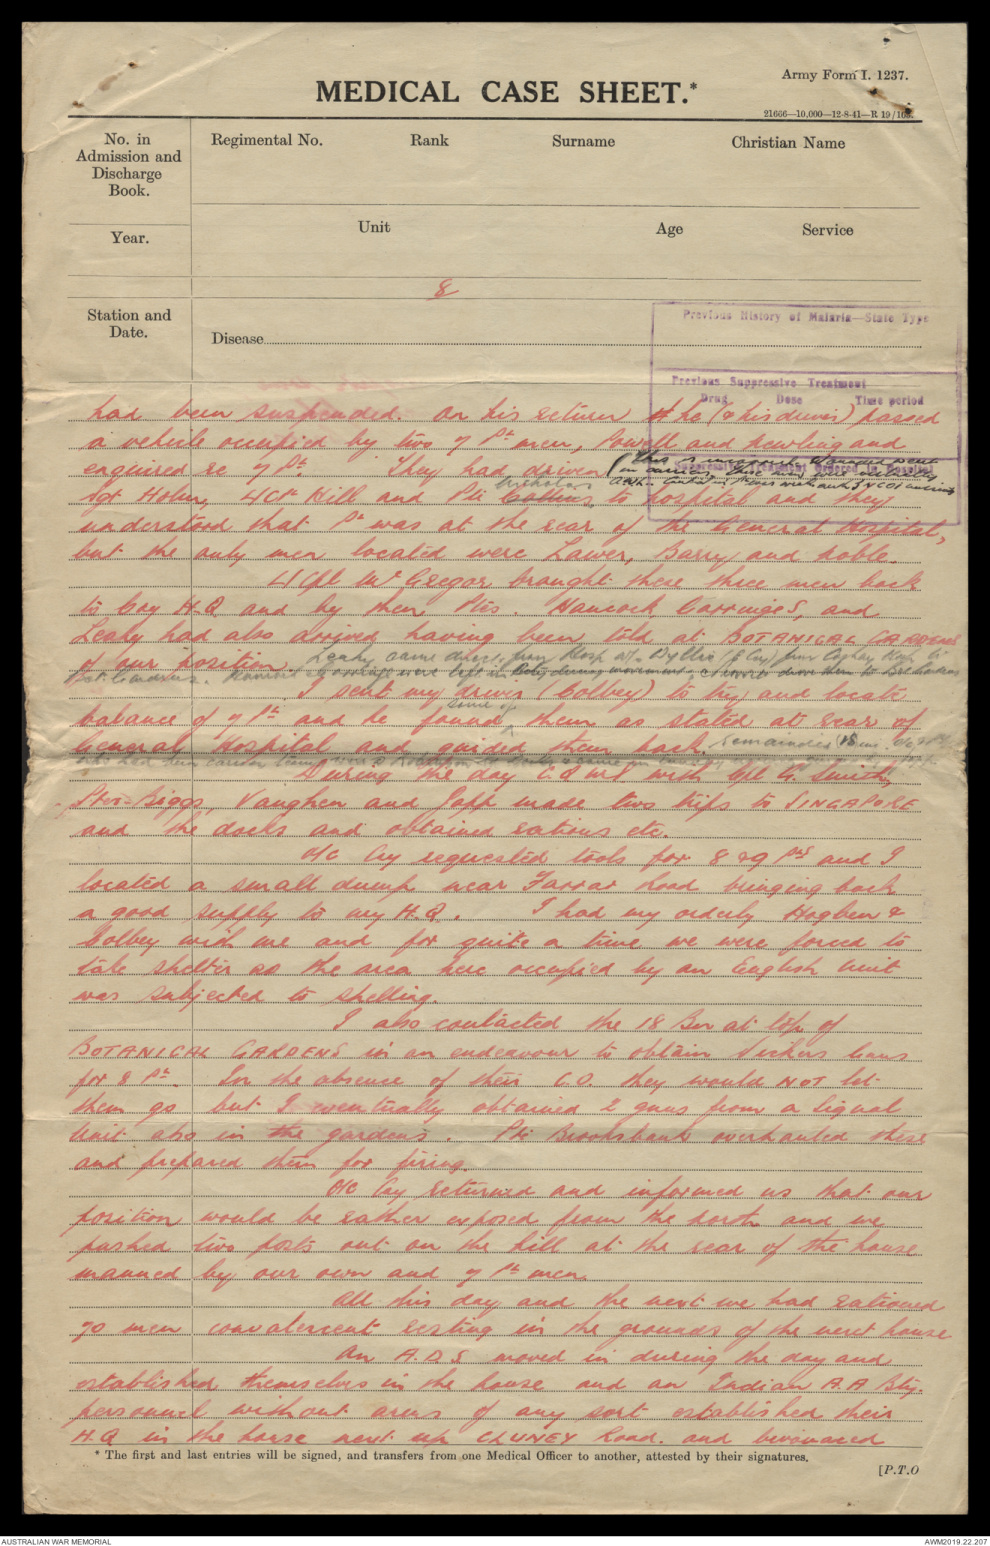 Army Form I. 1237.
MEDICAL CASE SHEET.*
21666—10,000—12-8-41—R 19/
No. in Admission and Discharge Book.
Regimental No. Rank Surname Christian Name
Year.
Unit Age Service
8
Station and Date.
Disease
Previous History of Malaria—State Type
Previous Suppressive Treatment
Drug Dose Time period
Suppressive Treatment Ordered in Hospital
had been suspended. On his return he (& his driver) passed
a vehicle occupied by two 7 Pt men, Powell and Newling and
enquired re 7 Pt. They had driven
(This is incorrect
Sgt Holm, L/Cpl Hill and Pte Nicholas to hospital and they
understood that Pt was at the rear of the General Hospital,
but the only men located were Lawer, Barry and Noble.
L/Cpl McGregor brought these three men back
to Coy H.Q and by then Ptes. Hancock Carriage S, and
Leahy had also arrived having been told at BOTANICAL GARDENS
of our position. Leahy came direct from Hosp
Bot. Gardens.
I sent my driver (Colbey) to try and locate
balance of 7 Pt and he found some of them as stated at rear of
General Hospital and guided them back. Remainder
During the day C.Q.M.S with Cpl G. Smith,
Ptes Biggs, Vaughan and Japp made two trips to SINGAPORE
and the docks and obtained rations etc.
O/C Coy requested tools for 8 & 9 Pts and I
located a small dump near Farrar Road bringing back
a good supply to my H.Q. I had my orderly Hogben &
Colbey with me and for quite a time we were forced to
take shelter as the area here occupied by an English unit
was subjected to shelling.
I also contacted the 18 Bn at top of
BOTANICAL GARDENS in an endeavour to obtain Vickers Guns
for 8 Pt. In the absence of their C.O. they would NOT let
them go but I eventually obtained 2 guns from a Signal
Unit also in the gardens. Pte Brooksbank overhauled these
and prepared them for firing.
O/C Coy returned and informed us that our
position would be rather exposed from the north and we
pushed two posts out on the hill at the rear of the house
manned by our own and 7 Pt men.
All this day and the next we had rationed
70 men convalescent resting in the grounds of the next house
An A.D.S moved in during the day and
established themselves in the house and an Indian A.A Bty.
personnel without arms of any sort established their
H.Q in the house next up CLUNEY Road. and bivouaced
* The first and last entries will be signed, and transfers from one Medical Officer to another, attested by their signatures.
[P.T.O
AUSTRALIAN WAR MEMORIAL
AWM2019.22.207